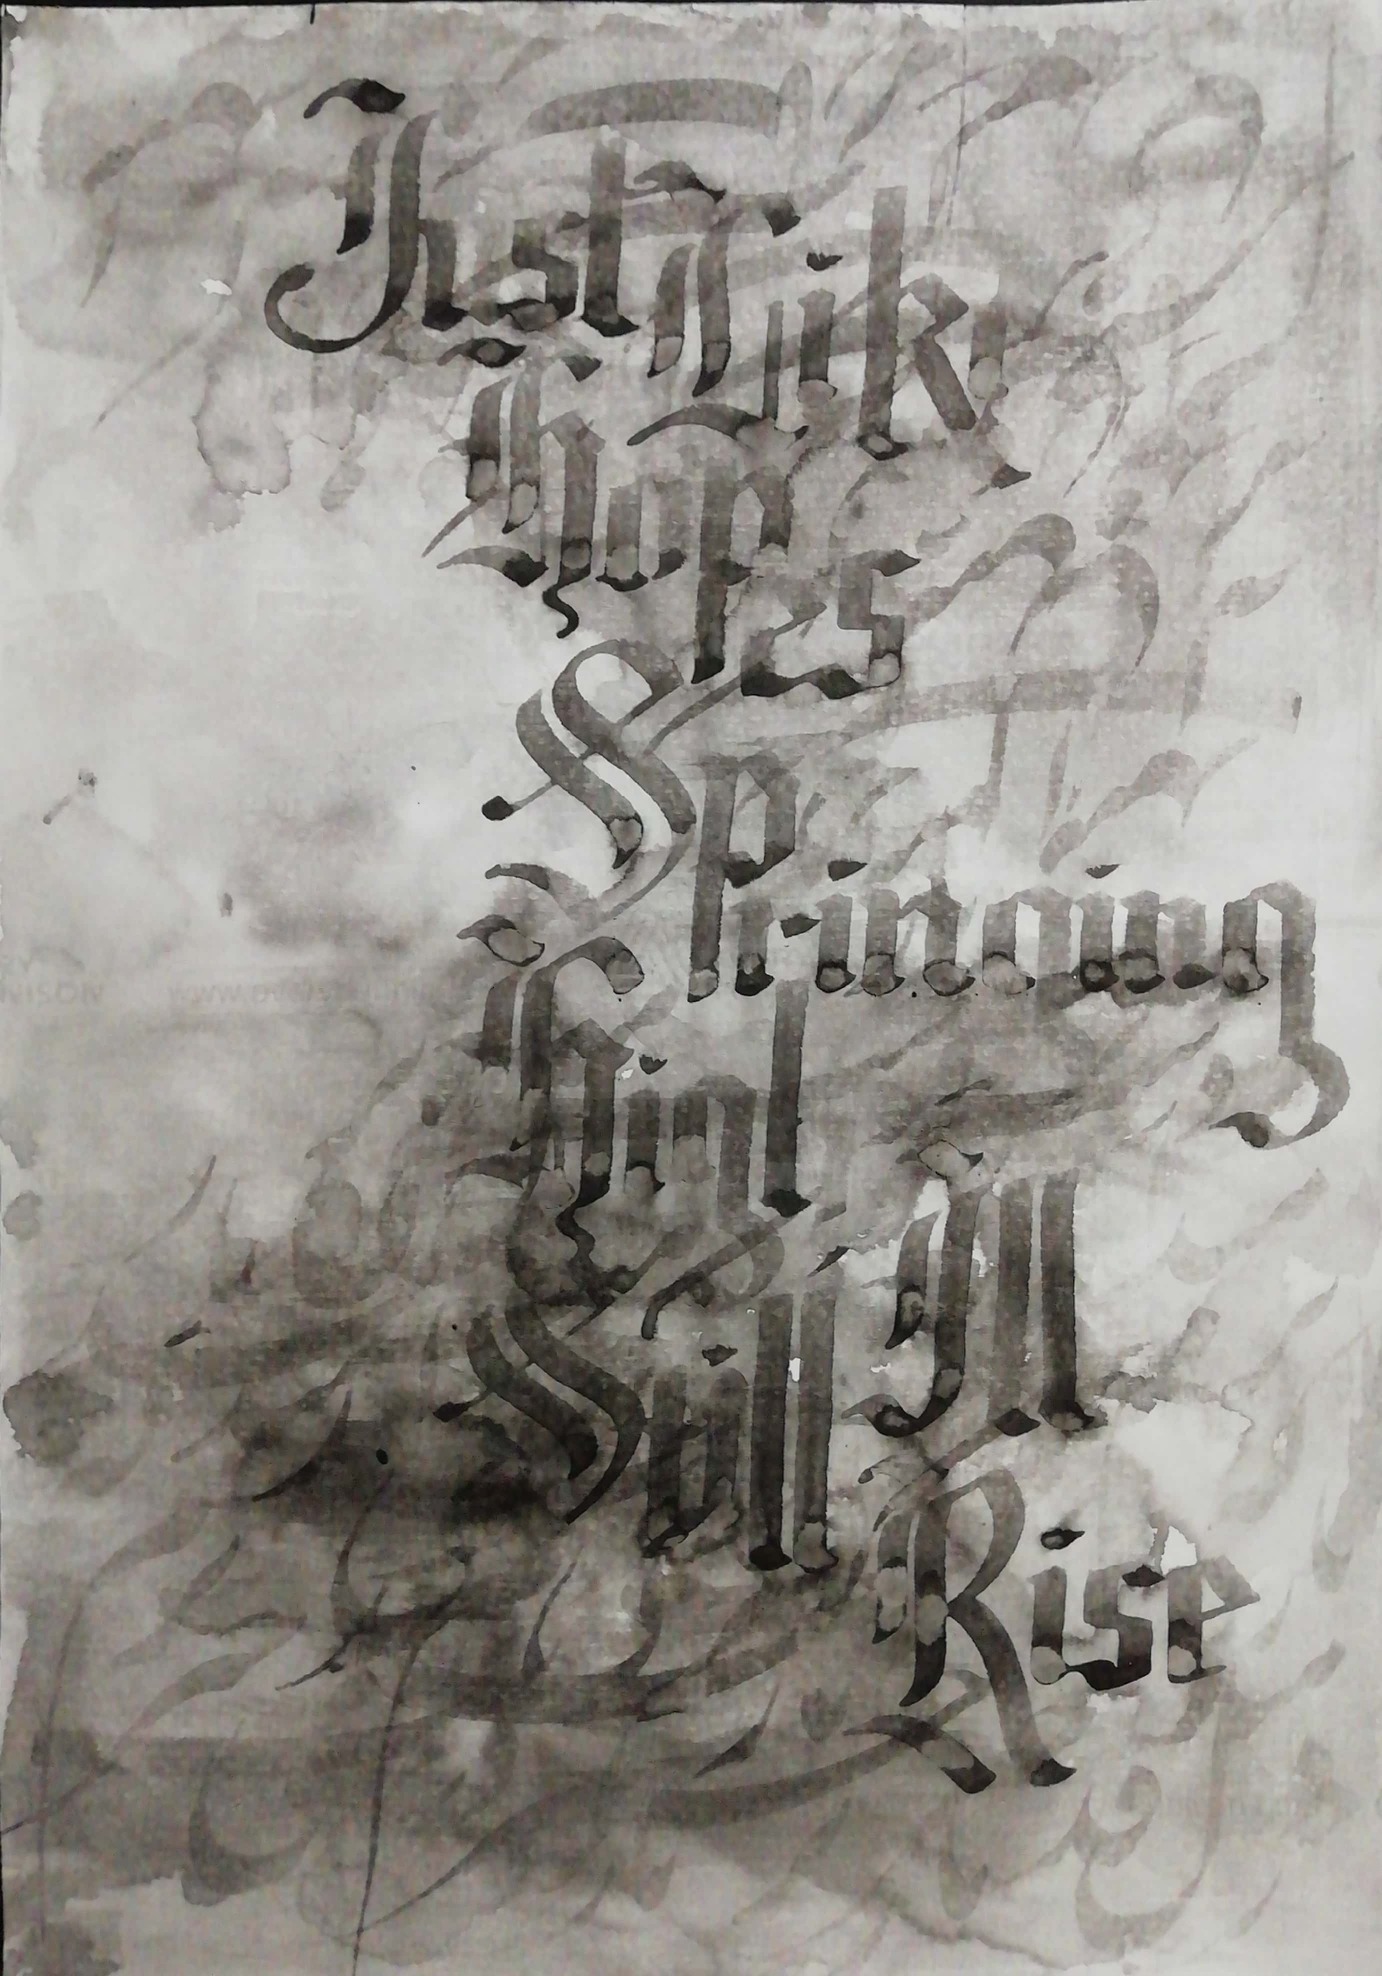 Just Like
hopes
Springing
high
Still I'll
Rise
NISON